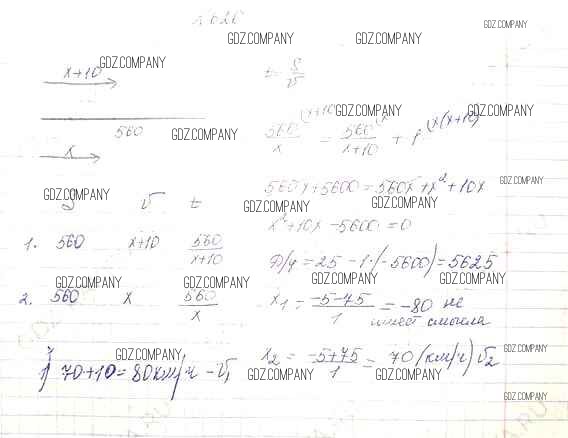 № 626
GDZ.COMPANY
GDZ.COMPANY GDZ.COMPANY
x+10 GDZ.COMPANY t = S/v
GDZ.COMPANY GDZ.COMPANY
560 GDZ.COMPANY 560/x (x+10 = 560/x+10 (x + 1 (x(x+10)
x
560x+5600=560x+x²+10x GDZ.COMPANY
GDZ.COMPANY GDZ.COMPANY GDZ.COMPANY
S v t x²+10x-5600=0
1. 560 x+10 560/x+10 Д/4 = 25 - 1·(-5600)=5625
GDZ.COMPANY GDZ.COMPANY GDZ.COMPANY GDZ.COMPANY
2. 560 x 560/x x₁ = -5-75/1 = -80 не
имеет смысла
GDZ.COMPANY x₂ = -5+75/1 = 70 (км/ч) v₂ GDZ.COMPANY
1) 70+10=80км/ч - v₁ GDZ.COMPANY GDZ.COMPANY GDZ.COMPANY
GDZ.COMPANY